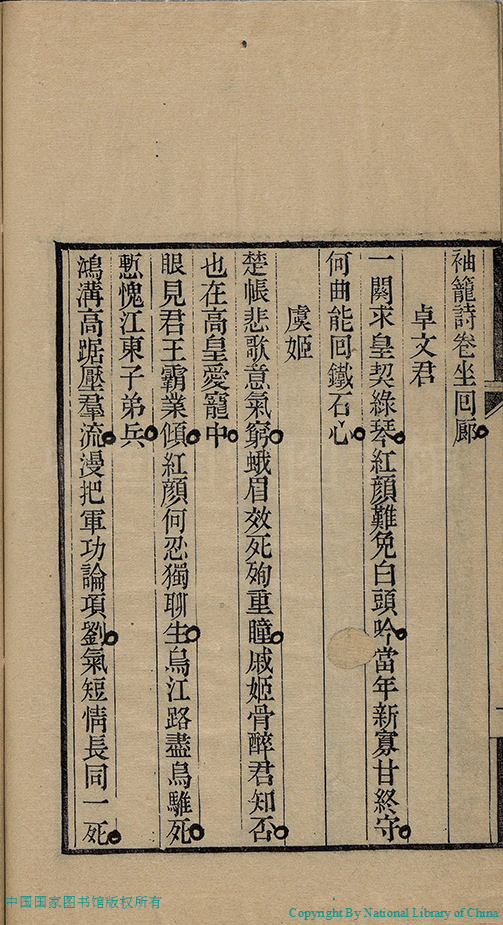 袖籠詩卷坐回廊
卓文君
一闋求皇契綠琴紅顔難免白頭吟當年新寡甘終守
何曲能回鐵石心
虞姬
楚帳悲歌意氣窮蛾眉效死殉重瞳戚姬骨醉君知否
也在高皇愛寵中
眼見君王霸業傾紅顔何忍獨聊生烏江路盡烏騅死
慙愧江東子弟兵
鴻溝高踞壓羣流漫把軍功論項劉氣短情長同一死
中国国家图书馆版权所有
Copyright By National Library of China